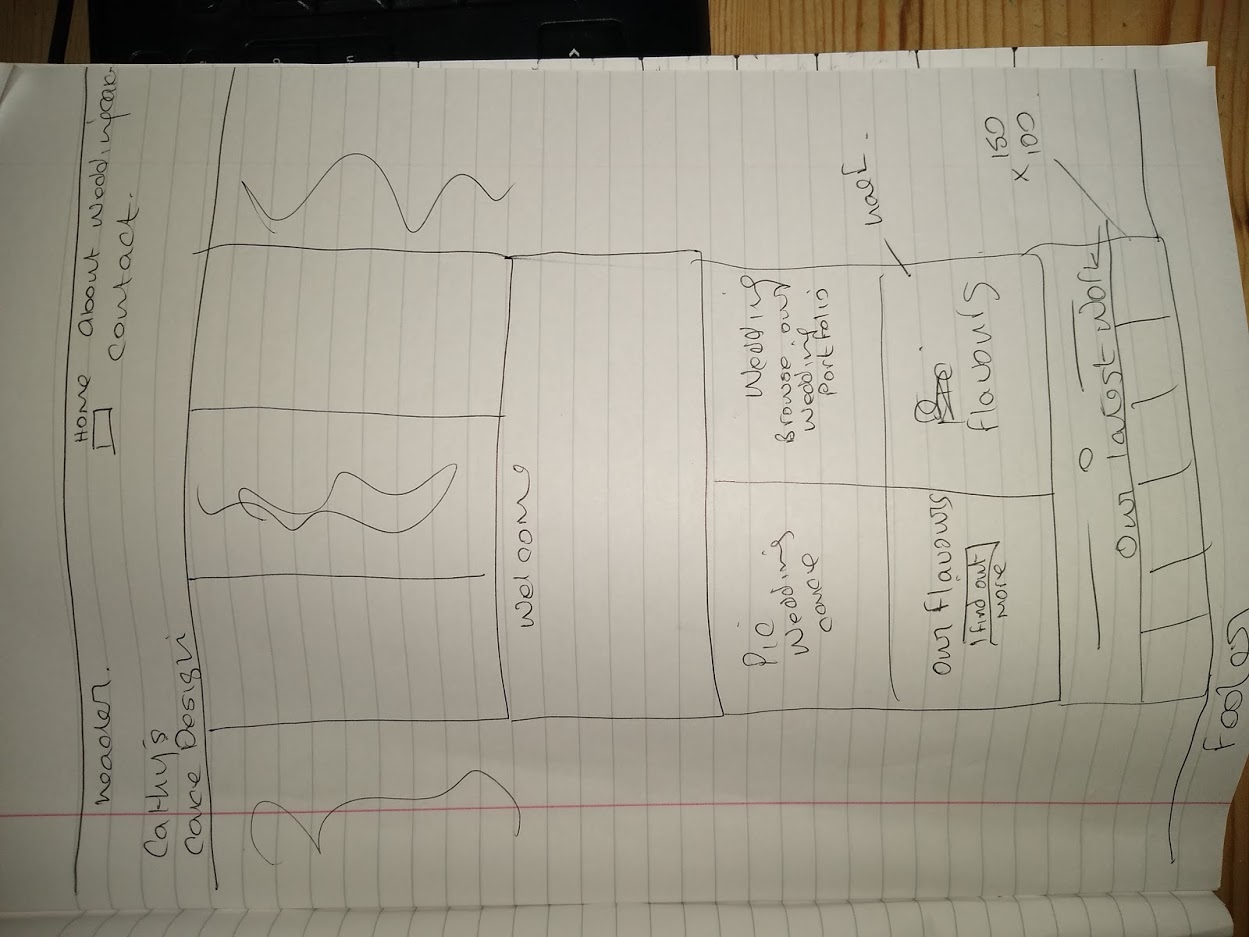 header.
Home about wedding
contact.
Cathy's
Cake Design
Welcome
Pic
Wedding
cake
Wedding
Browse our
wedding
portfolio
half.
our flavours
find out
more
flavours
Our latest work
150
x 100